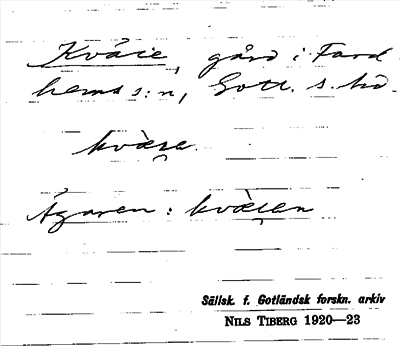 Kväie, gård i Fard
hems s:n, Gotl. s. hd.
kvàẹre.
Ägaren: kvàẹren
Sällsk. f. Gotländsk forskn. arkiv
NILS TIBERG 1920—23